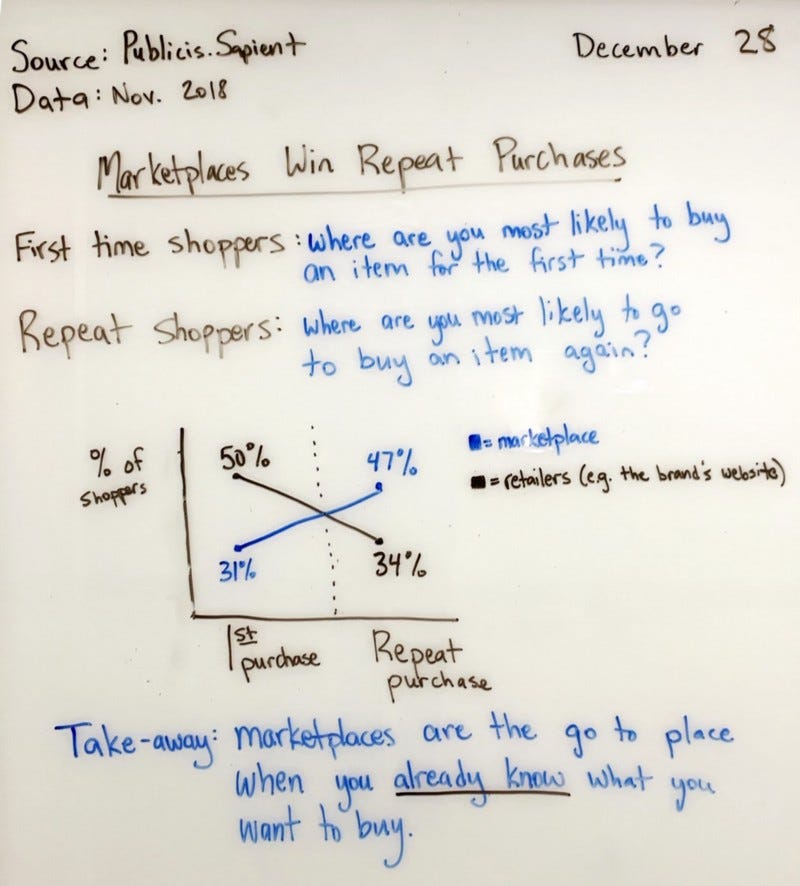 Source: Publicis.Sapient
December 28
Data: Nov. 2018
Marketplaces Win Repeat Purchases
First time shoppers: where are you most likely to buy
an item for the first time?
Repeat shoppers: where are you most likely to go
to buy an item again?
% of
shoppers
50%
47%
31%
34%
■= marketplace
■= retailers (e.g. the brand's website)
1st
purchase
Repeat
purchase
Take-away: marketplaces are the go to place
when you already know what you
want to buy.